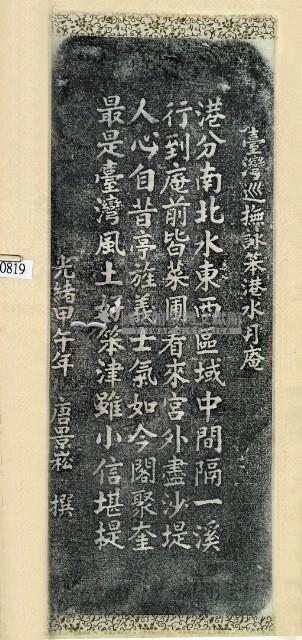 臺灣巡撫詠笨港水月庵
港分南北水東西區域中間隔一溪
行到庵前皆菜圃看來宮外盡沙堤
人心自昔亭旌義士氣如今閣聚奎
最是臺灣風土好笨津雖小信堪梯
光緒甲午年 唐景崧 撰
0819